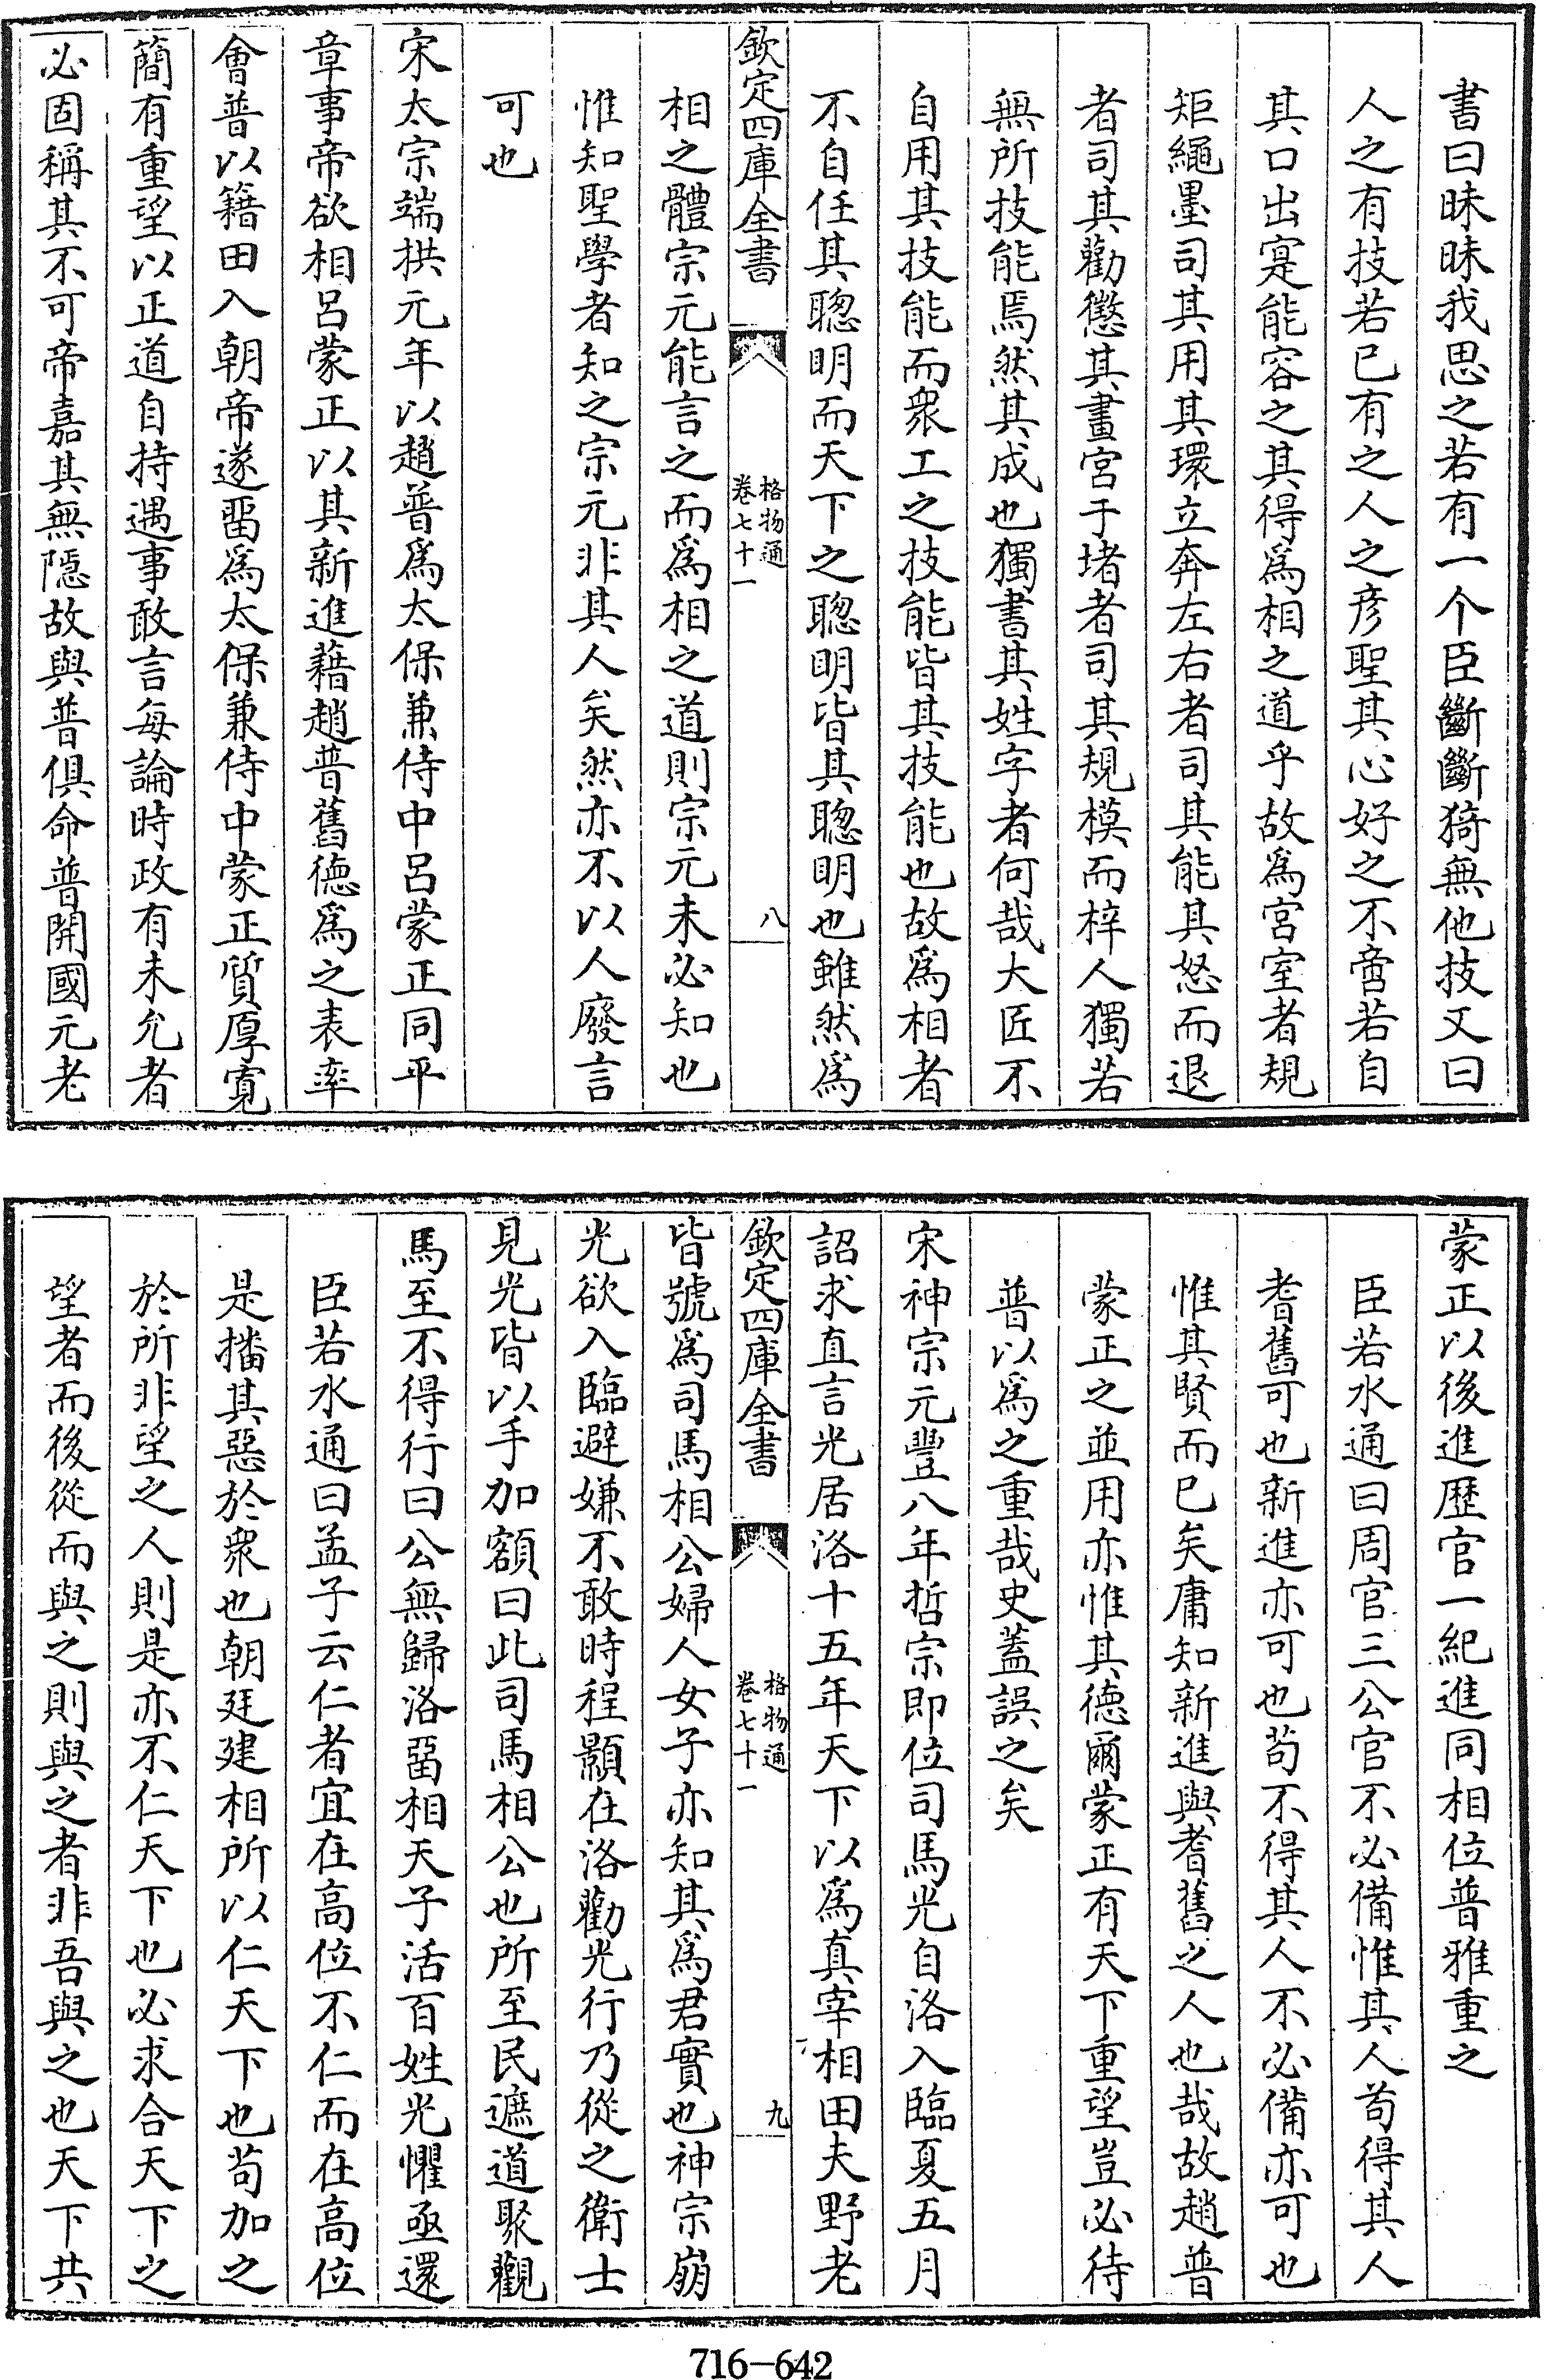 書曰昧昧我思之若有一个臣斷斷猗無他技又曰
人之有技若已有之人之彦聖其心好之不啻若自
其口出寔能容之其得爲相之道乎故爲宫室者規
矩繩墨司其用其環立奔左右者司其能其怒而退
者司其勸懲其畫宫于堵者司其規模而梓人獨若
無所技能焉然其成也獨書其姓字者何哉大匠不
自用其技能而衆工之技能皆其技能也故爲相者
不自任其聰明而天下之聰明皆其聰明也雖然爲
欽定四庫全書
格物通
卷七十一
八
相之體宗元能言之而爲相之道則宗元未必知也
惟知聖學者知之宗元非其人矣然亦不以人廢言
可也
宋太宗端拱元年以趙普爲太保兼侍中吕蒙正同平
章事帝欲相吕蒙正以其新進藉趙普舊德爲之表率
會普以籍田入朝帝遂畱爲太保兼侍中蒙正質厚寛
簡有重望以正道自持遇事敢言每論時政有未允者
必固稱其不可帝嘉其無隱故與普俱命普開國元老
蒙正以後進歴官一紀進同相位普雅重之
臣若水通曰周官三公官不必備惟其人苟得其人
耆舊可也新進亦可也苟不得其人不必備亦可也
惟其賢而已矣庸知新進與耆舊之人也哉故趙普
蒙正之並用亦惟其德爾蒙正有天下重望豈必待
普以爲之重哉史蓋誤之矣
宋神宗元豐八年哲宗即位司馬光自洛入臨夏五月
詔求直言光居洛十五年天下以爲真宰相田夫野老
欽定四庫全書
格物通
卷七十一
九
皆號爲司馬相公婦人女子亦知其爲君實也神宗崩
光欲入臨避嫌不敢時程顥在洛勸光行乃從之衛士
見光皆以手加額曰此司馬相公也所至民遮道聚觀
馬至不得行曰公無歸洛畱相天子活百姓光懼亟還
臣若水通曰孟子云仁者宜在高位不仁而在高位
是播其惡於衆也朝廷建相所以仁天下也苟加之
於所非望之人則是亦不仁天下也必求合天下之
望者而後從而與之則與之者非吾與之也天下共
716-642